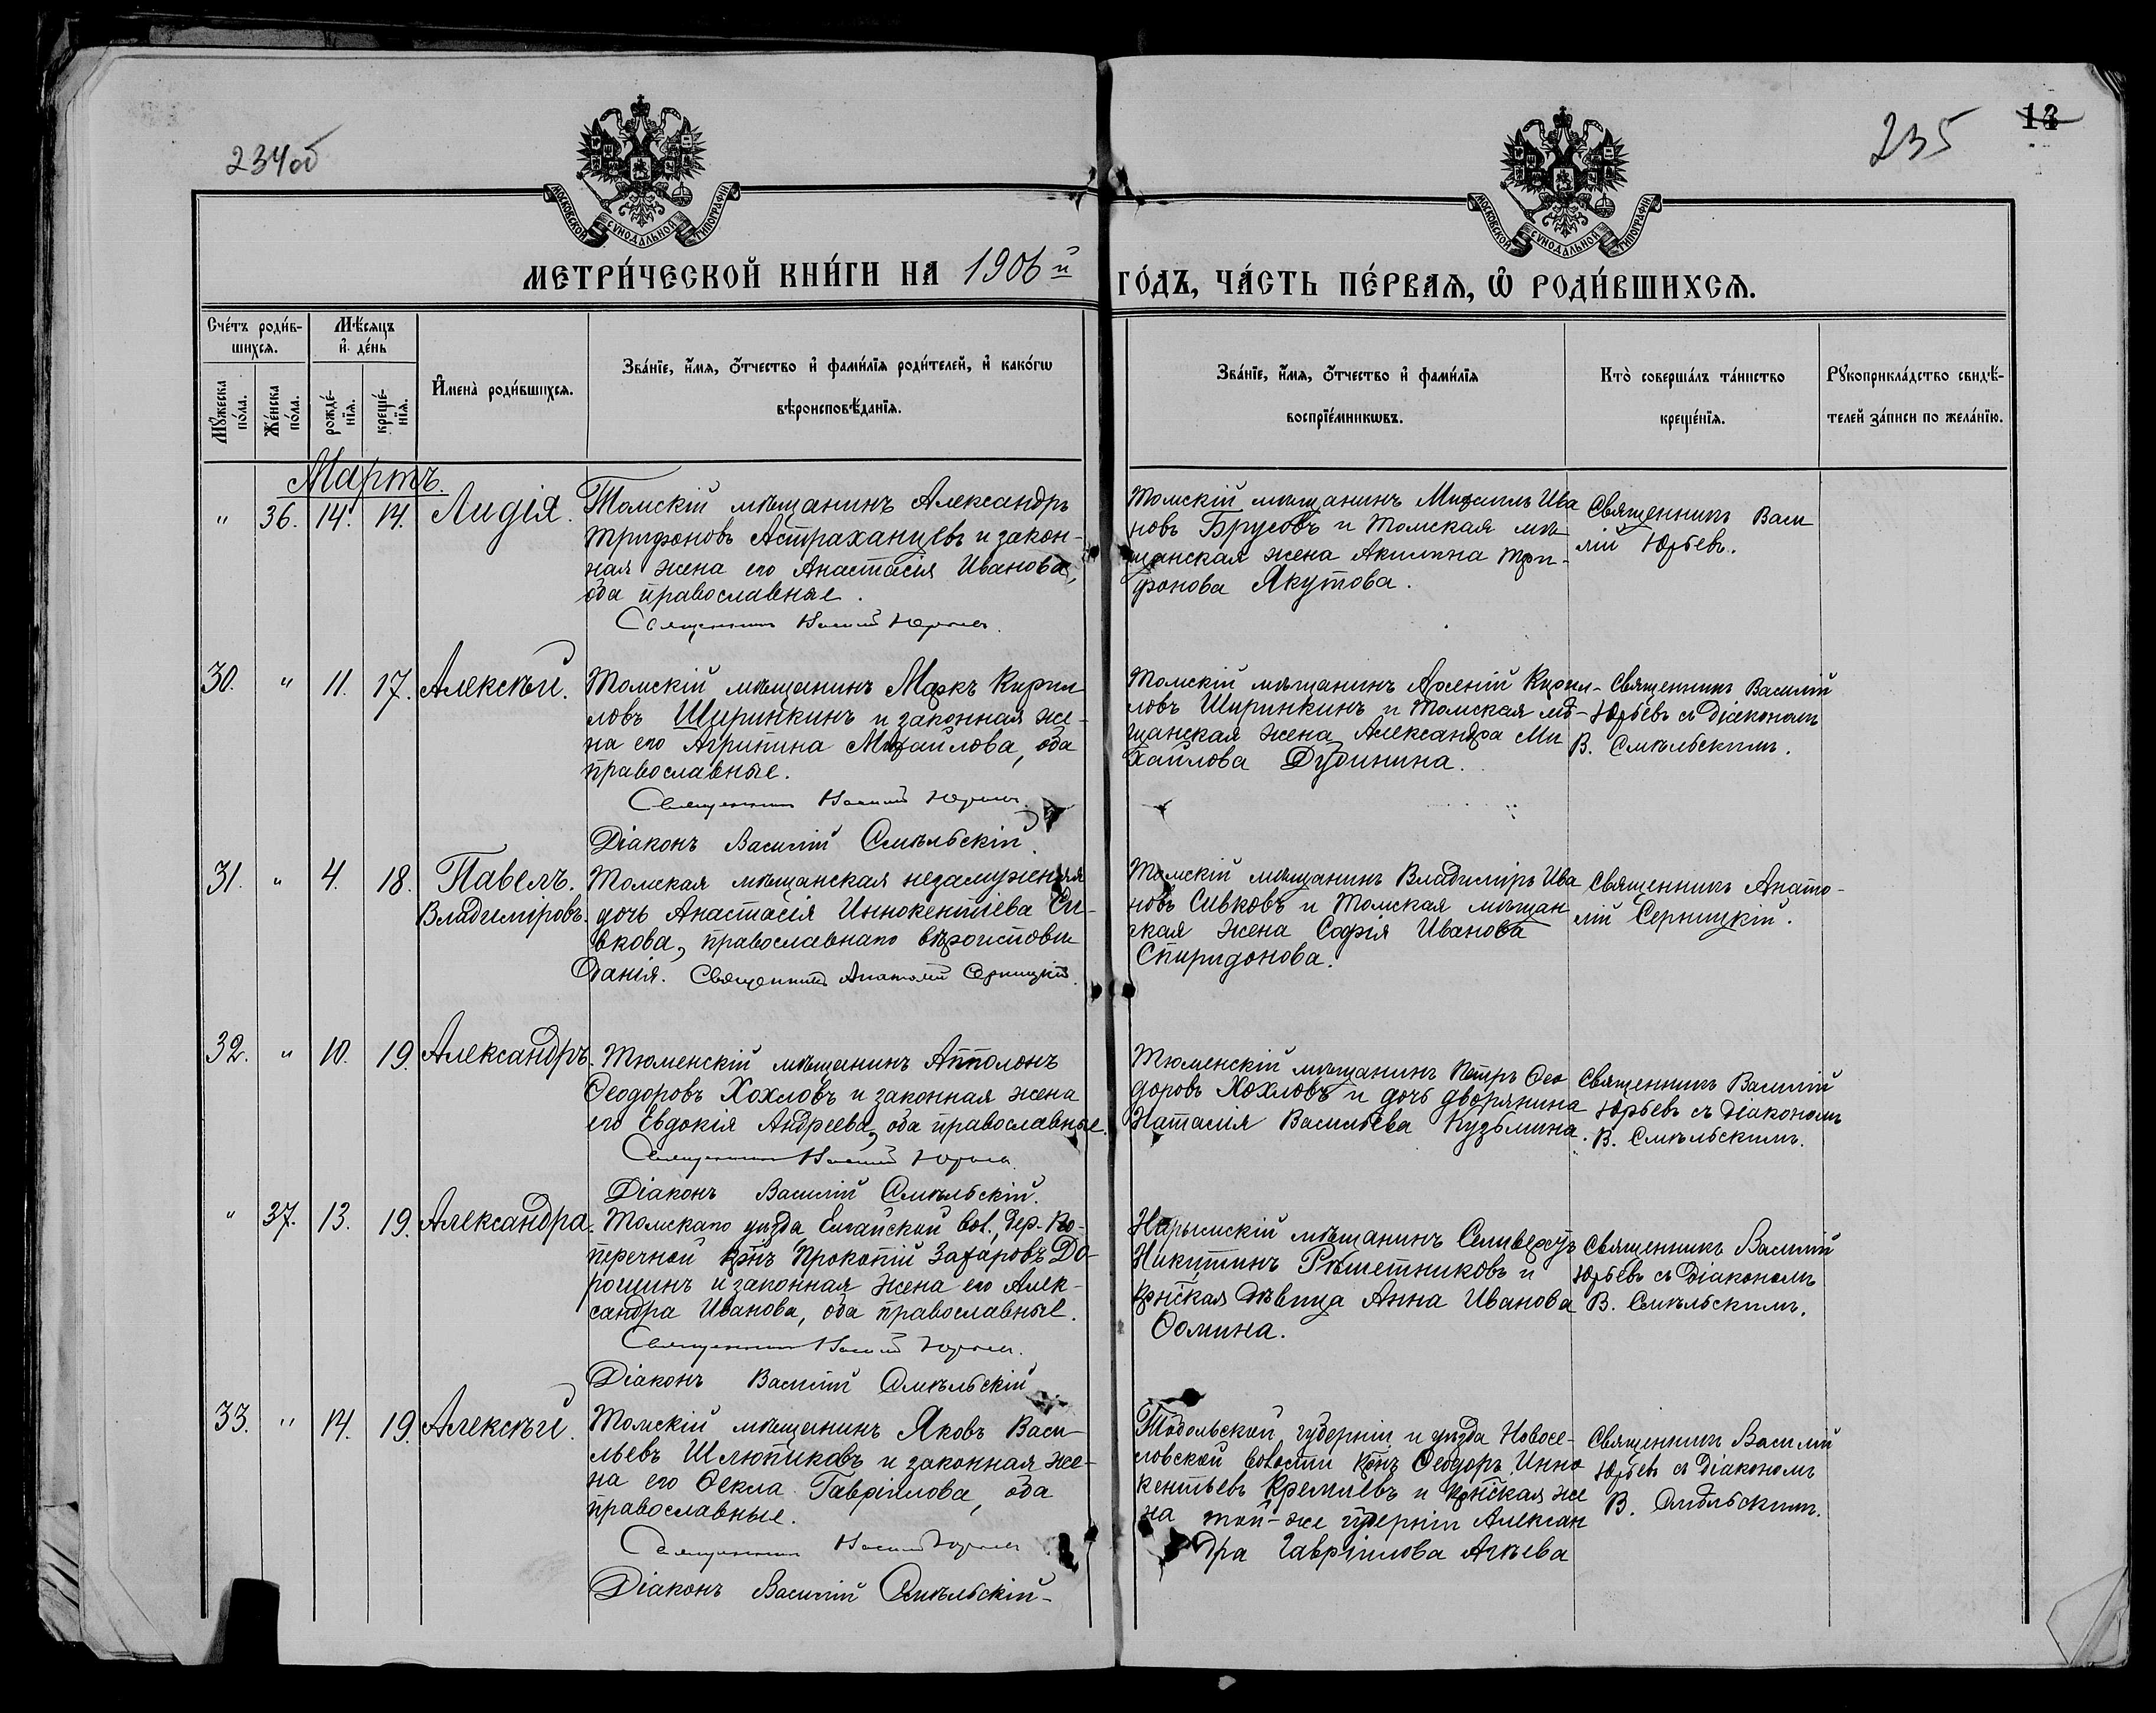 234об
235
МОСКОВСКОЙ СѴНОДАЛЬНОЙ ТИПОГРАФІИ
МОСКОВСКОЙ СѴНОДАЛЬНОЙ ТИПОГРАФІИ
МЕТРИ́ЧЕСКОЙ КНИ́ГИ НА 1906й ГО́ДЪ, ЧА́СТЬ ПЕ́РВАѦ, Ѡ҆ РОДИ́ВШИХСѦ.
Сче́тъ роди́в-
шихсѧ.
Мꙋ́жеска по́ла.
Же́нска по́ла.
Мѣ́сѧцъ
и҆ де́нь
рожде́-
нїѧ.
креще́-
нїѧ.
И҆мена̀ роди́вшихсѧ.
Зва́нїе, и҆́мѧ, ѻ҆́тчество и҆ фами́лїѧ роди́телей, и҆ како́гѡ
вѣроисповѣ́данїѧ.
Зва́нїе, и҆́мѧ, ѻ҆́тчество и҆ фами́лїѧ
воспрїе́мникѡвъ.
Кто̀ соверша́лъ та́инство
креще́нїѧ.
Рꙋкоприкла́дство свидѣ́-
телей за́писи по жела́нїю.
Мартъ.
" 36. 14. 14. Лидія.
Томскій мѣщанинъ Александръ
Трифоновъ Астраханцевъ и закон-
ная жена его Анастасія Иванова,
оба православные.
Священникъ Василій Юрьевъ.
Томскій мѣщанинъ Михаилъ Ива
новъ Брусовъ и томская мѣ
щанская жена Акилина Три-
фонова Якутова.
Священникъ Васи
лій Юрьевъ.
30. " 11. 17. Алексѣй.
Томскій мѣщанинъ Маркъ Кирил
ловъ Ширинкинъ и законная же-
на его Агрипина Михайлова, оба
православные.
Священникъ Василій Юрьевъ.
Діаконъ Василій Смѣльскій.
Томскій мѣщанинъ Арсеній Кирил-
ловъ Ширинкинъ и томская мѣ-
щанская жена Александра Ми
хайлова Дубинина.
Священникъ Василій
Юрьевъ съ діакономъ
В. Смѣльскимъ.
31. " 4. 18. Павелъ.
Владиміровъ.
Томская мѣщанская незамужняя
дочь Анастасія Иннокентіева Си-
вкова, православнаго вѣроисповѣ
данія. Священникъ Анатолій Серницкій.
Томскій мѣщанинъ Владиміръ Ива
новъ Сивковъ и томская мѣщан
ская жена Софія Иванова
Спиридонова.
Священникъ Анато-
лій Серницкій.
32. " 10. 19. Александръ.
Тюменскій мѣщанинъ Апполонъ
Ѳеодоровъ Хохловъ и законная жена
его Евдокія Андреева, оба православные.
Священникъ Василій Юрьевъ.
Діаконъ Василій Смѣльскій.
Тюменскій мѣщанинъ Петръ Ѳео
доровъ Хохловъ и дочь дворянина
Наталія Васильева Кузьмина.
Священникъ Василій
Юрьевъ съ діакономъ
В. Смѣльскимъ.
" 37. 13. 19. Александра.
Томскаго уѣзда, Елгайской вол., дер. По-
перечной крнъ Прокопій Захаровъ До-
рошинъ и законная жена его Алек-
сандра Иванова, оба православные.
Священникъ Василій Юрьевъ.
Діаконъ Василій Смѣльскій
Нарымскій мѣщанинъ Селиверстъ
Никитинъ Рѣшетниковъ и
крнская дѣвица Анна Иванова
Ѳомина.
Священникъ Василій
Юрьевъ съ діакономъ
В. Смѣльскимъ.
33. " 14. 19. Алексѣй.
Томскій мѣщанинъ Яковъ Васи-
льевъ Шлюпиковъ и законная же-
на его Ѳекла Гавріилова, оба
православные.
Священникъ Василій Юрьевъ
Діаконъ Василій Смѣльскій-
Тобольской губерніи и уѣзда Новосе-
ловской волости крнъ Ѳеодоръ Инно
кентьевъ Кремлевъ и крнская же
на той-же губерніи Алексан
дра Гавріилова Агѣева
Священникъ Василій
Юрьевъ съ діакономъ
В. Смѣльскимъ.